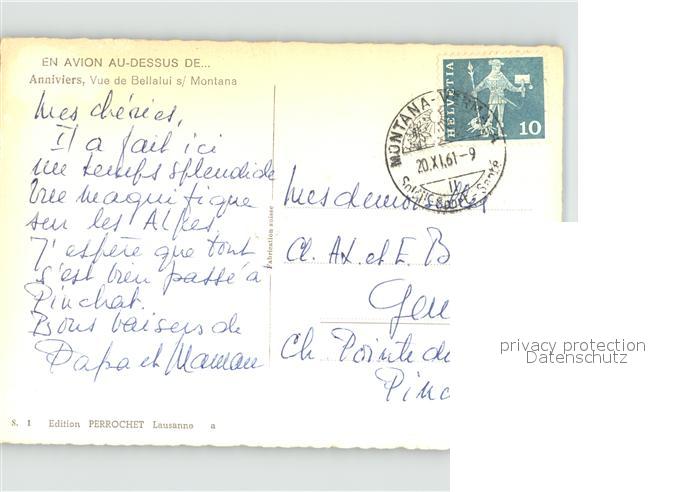 EN AVION AU-DESSUS DE...
Anniviers, Vue de Bellalui s/ Montana
Mes chéries,
Il a fait ici
un temps splendide
Vue magnifique
sur les Alpes
J'espère que tout
s'est bien passé à
Pinchat.
Bons baisers de
Papa et Maman
S. 1 Edition PERROCHET Lausanne a
Fabrication suisse
HELVETIA
10
MONTANA-VERMALA
20.XI.61-9
Soleil-Sports-Santé
Mesdemoiselles
Cl. Ax. et E. B
Gen
Ch. Pointe du
Pinc
privacy protection
Datenschutz